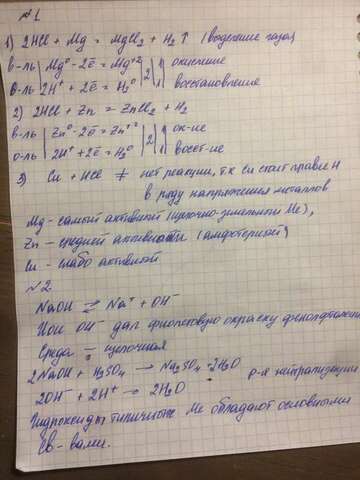 №1
1) 2HCl + Mg = MgCl₂ + H₂↑ (выделение газа)
в-ль | Mg⁰ - 2ē = Mg⁺² | 2 | 1 окисление
о-ль | 2H⁺ + 2ē = H₂⁰ | 2 | 1 восстановление
2) 2HCl + Zn = ZnCl₂ + H₂
в-ль | Zn⁰ - 2ē = Zn⁺² | 2 | 1 ок-ие
о-ль | 2H⁺ + 2ē = H₂⁰ | 2 | 1 восст-ие
3) Cu + HCl ≠ нет реакции, т.к Cu стоит правее H
в ряду напряжения металлов
Mg - самый активный (щелочно-земельный Me),
Zn - средней активности (амфотерный)
Cu - слабо активный
№2
NaOH ⇄ Na⁺ + OH⁻
Ион OH⁻ дал фиолетовую окраску фенолфталеина
Среда - щелочная
2NaOH + H₂SO₄ → Na₂SO₄ + 2H₂O
2OH⁻ + 2H⁺ → 2H₂O р-я нейтрализации
Гидроксиды типичных Me обладают основными
св-вами.